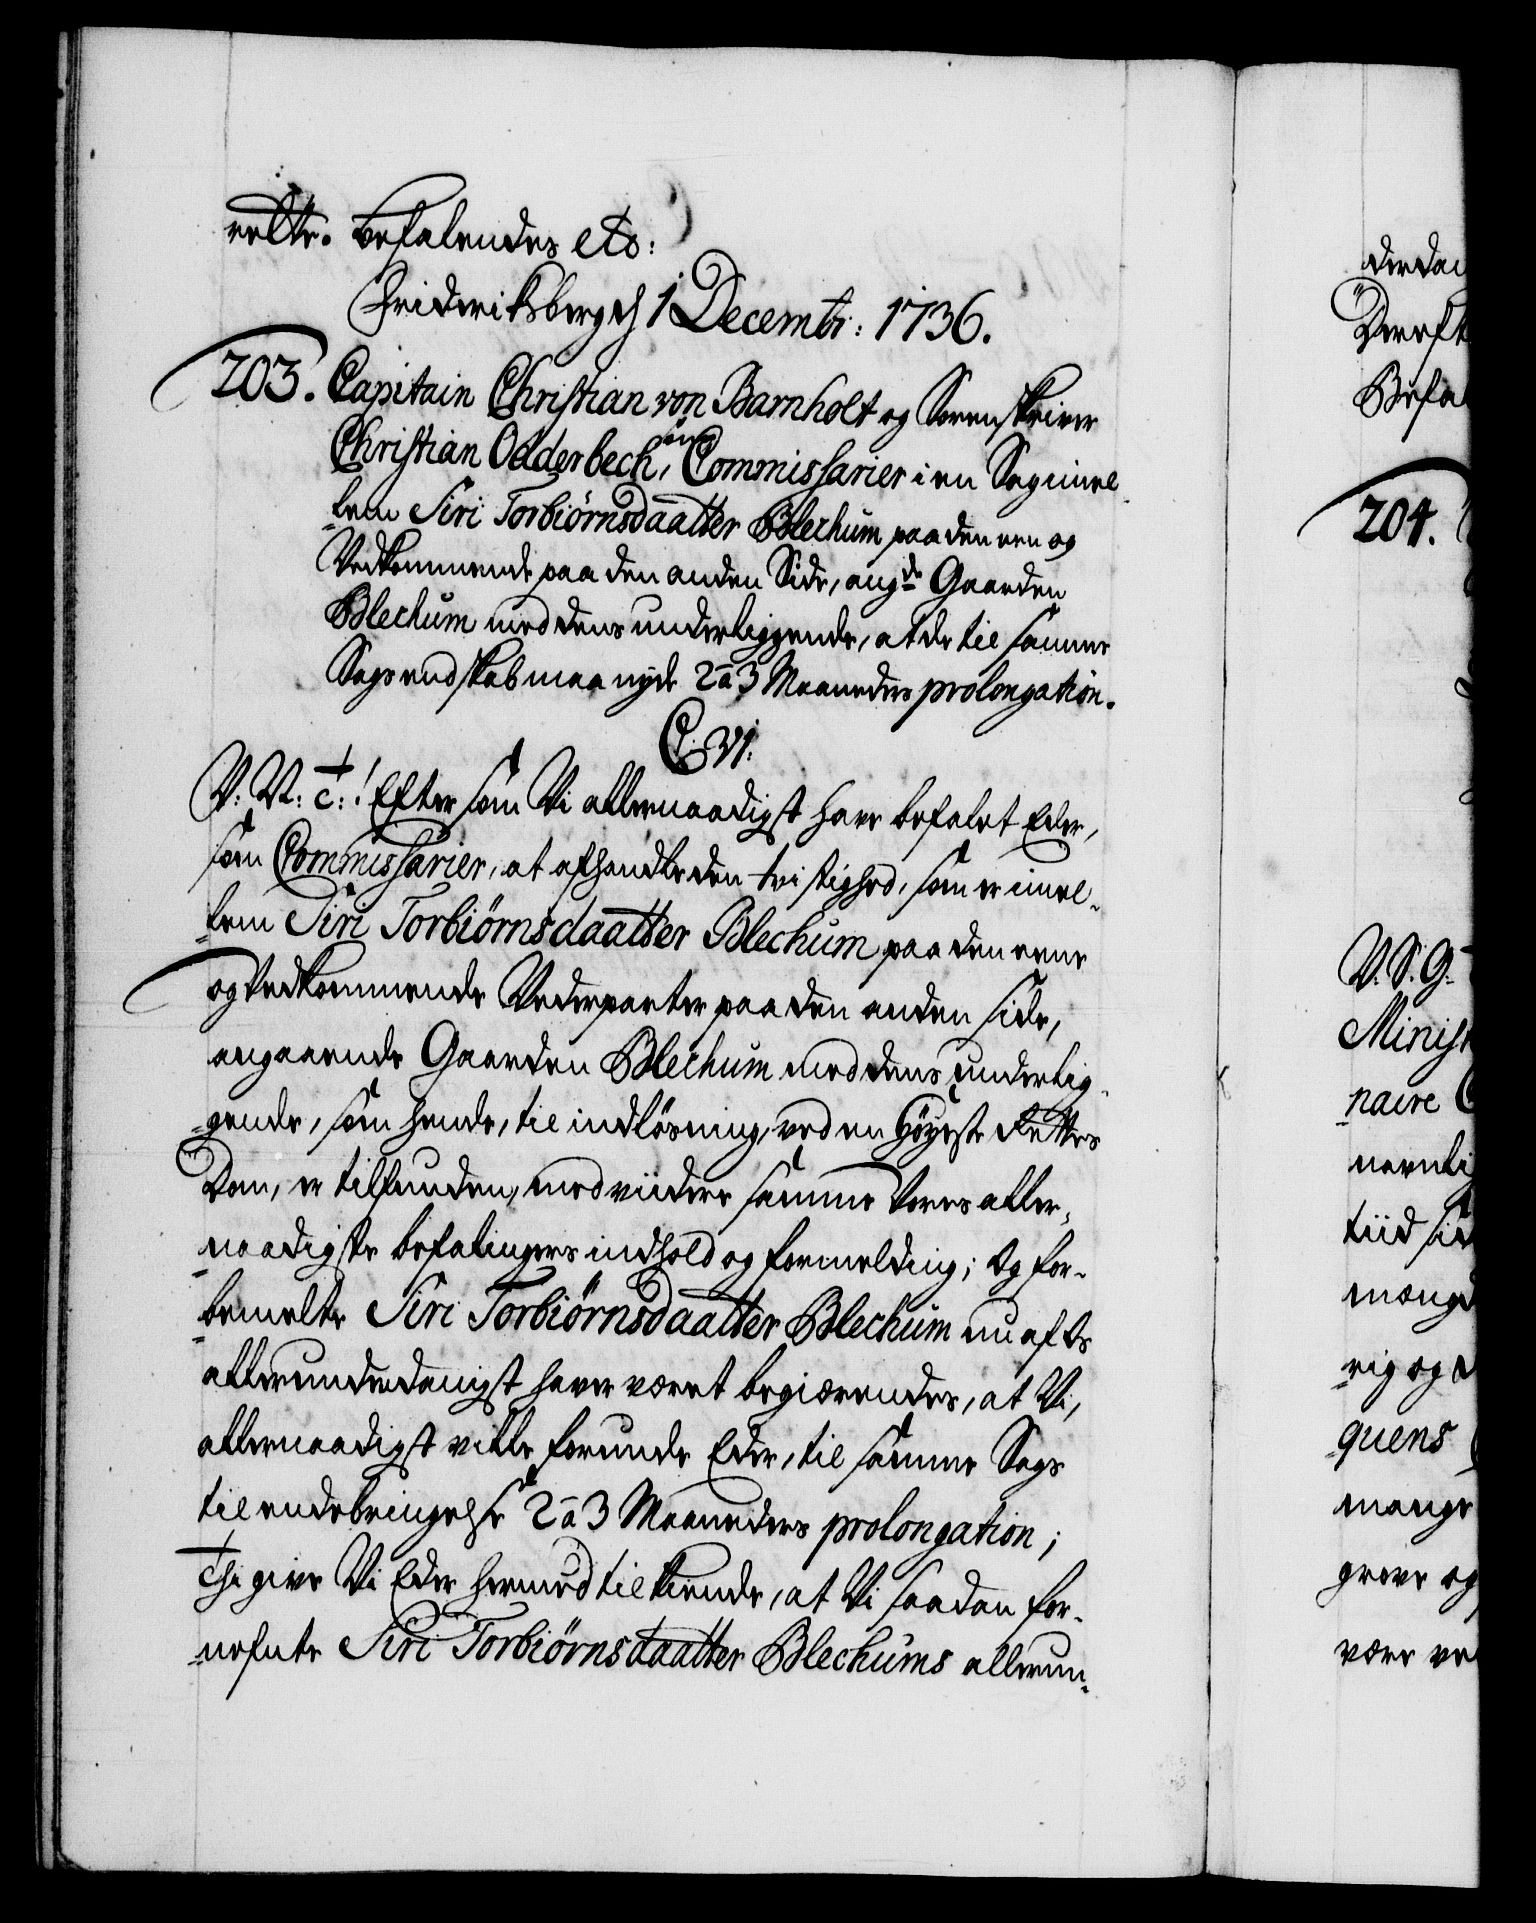 rette. Befalendes etc:
Friderichsberg d 1 Decembr: 1736.
203. Capitain Christian von Barnholt og Sorenskriver
Christian Odderbech, som Commissarier i en Sag imel-
lem Siri Torbiörnsdaatter Blechum paa den een og
Vedkommende paa den anden Side, angde Gaarden
Blechum med dens underliggende, at de til samme
Sags endskab maa nyde 2 à 3 Maaneders prolongation.
C. VI.
V: V: t: ! Efter som Vi allernaadigst have befalet Eder,
som Commissarier, at afhandle den tvistighed, som er imel-
lem Siri Torbiörnsdaatter Blechum paa den eene
og Vedkommende Vederparter paa den anden side,
angaaende Gaarden Blechum med dens underlig-
gende, som hende, til indlösning, ved en Höyeste Rettes
Dom, er tilfunden, med viidere samme Vores aller-
naadigste befalingers indhold og formelding; Og for-
bemelte Siri Torbiörnsdaatter Blechum nu af Os
allerunderdanigst haver været begiærendes, at Vi,
allernaadigst ville forunde Eder, til samme Sags
til endebringelse 2 à 3 Maaneders prolongation;
Thi give Vi Eder hermed tilkiende, at Vi saadan for-
nefnte Siri Torbiörnsdaatter Blechums allerun-
derdan
Dereft
Befal
204.
V. S. G.
Minist
naire C
nemli
tiid si
mængd
rig og
quens
mange
grave og
være ve